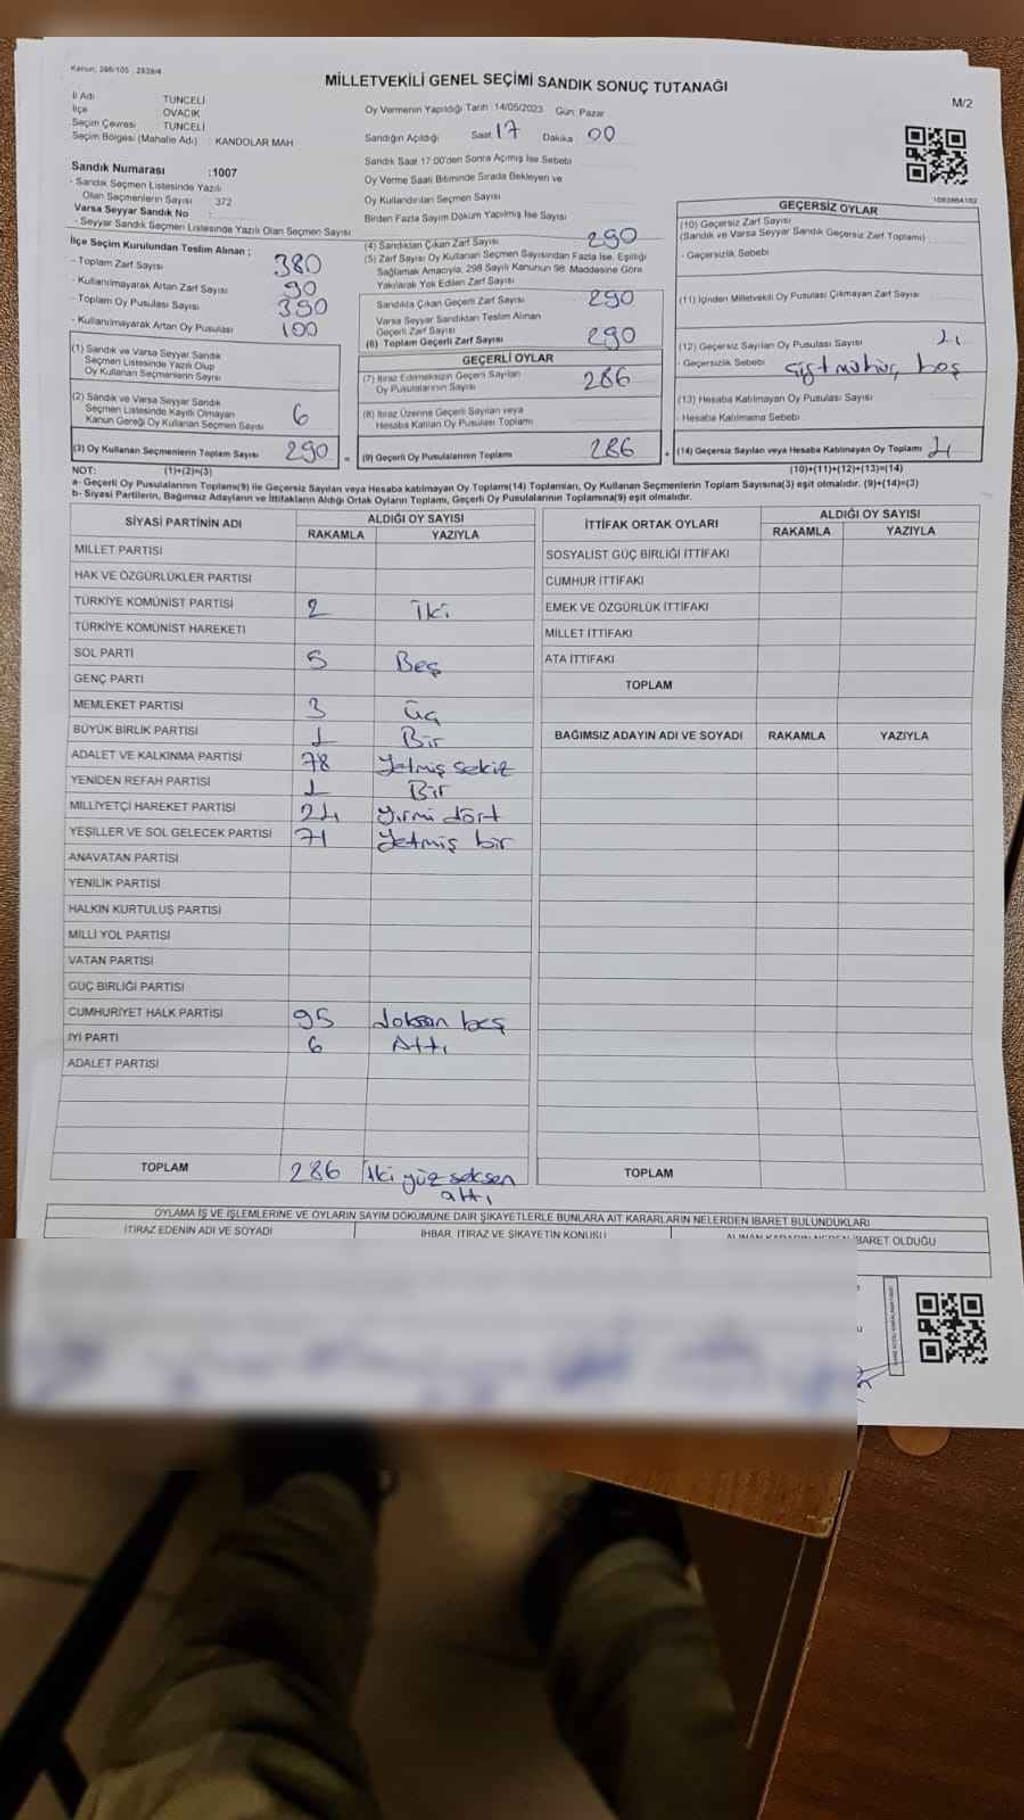 Kanun: 298/105 2839/4
MİLLETVEKİLİ GENEL SEÇİMİ SANDIK SONUÇ TUTANAĞI
M/2
İl Adı TUNCELİ
İlçe OVACIK
Seçim Çevresi TUNCELİ
Seçim Bölgesi (Mahalle Adı) KANDOLAR MAH
Oy Vermenin Yapıldığı Tarih :14/05/2023 Gün: Pazar
Sandığın Açıldığı Saat 17 Dakika 00
Sandık Saat 17:00'den Sonra Açılmış İse Sebebi
Oy Verme Saati Bitiminde Sırada Bekleyen ve
Oy Kullandırılan Seçmen Sayısı
Birden Fazla Sayım Döküm Yapılmış İse Sayısı
Sandık Numarası :1007
- Sandık Seçmen Listesinde Yazılı
Olan Seçmenlerin Sayısı 372
Varsa Seyyar Sandık No :
- Seyyar Sandık Seçmen Listesinde Yazılı Olan Seçmen Sayısı
İlçe Seçim Kurulundan Teslim Alınan :
- Toplam Zarf Sayısı 380
- Kullanılmayarak Artan Zarf Sayısı 90
- Toplam Oy Pusulası Sayısı 390
- Kullanılmayarak Artan Oy Pusulası 100
(1) Sandık ve Varsa Seyyar Sandık
Seçmen Listesinde Yazılı Olup
Oy Kullanan Seçmenlerin Sayısı
(2) Sandık ve Varsa Seyyar Sandık
Seçmen Listesinde Kayıtlı Olmayan
Kanun Gereği Oy Kullanan Seçmen Sayısı 6
(3) Oy Kullanan Seçmenlerin Toplam Sayısı 290
(1)+(2)=(3)
(4) Sandıktan Çıkan Zarf Sayısı 290
(5) Zarf Sayısı Oy Kullanan Seçmen Sayısından Fazla İse, Eşitliği
Sağlamak Amacıyla, 298 Sayılı Kanunun 98. Maddesine Göre
Yakılarak Yok Edilen Zarf Sayısı
Sandıkta Çıkan Geçerli Zarf Sayısı 290
Varsa Seyyar Sandıktan Teslim Alınan
Geçerli Zarf Sayısı
(6) Toplam Geçerli Zarf Sayısı 290
GEÇERLİ OYLAR
(7) İtiraz Edilmeksizin Geçerli Sayılan
Oy Pusulalarının Sayısı 286
(8) İtiraz Üzerine Geçerli Sayılan veya
Hesaba Katılan Oy Pusulası Toplamı
(9) Geçerli Oy Pusulalarının Toplamı 286
GEÇERSİZ OYLAR
(10) Geçersiz Zarf Sayısı
(Sandık ve Varsa Seyyar Sandık Geçersiz Zarf Toplamı)
- Geçersizlik Sebebi
(11) İçinden Milletvekili Oy Pusulası Çıkmayan Zarf Sayısı
(12) Geçersiz Sayılan Oy Pusulası Sayısı 4
- Geçersizlik Sebebi çift mühür, boş
(13) Hesaba Katılmayan Oy Pusulası Sayısı
- Hesaba Katılmama Sebebi
(14) Geçersiz Sayılan veya Hesaba Katılmayan Oy Toplamı 4
(10)+(11)+(12)+(13)=(14)
NOT:
a- Geçerli Oy Pusulalarının Toplamı(9) ile Geçersiz Sayılan veya Hesaba katılmayan Oy Toplamı(14) Toplamları, Oy Kullanan Seçmenlerin Toplam Sayısına(3) eşit olmalıdır. (9)+(14)=(3)
b- Siyasi Partilerin, Bağımsız Adayların ve İttifakların Aldığı Ortak Oyların Toplamı, Geçerli Oy Pusulalarının Toplamına(9) eşit olmalıdır.
SİYASİ PARTİNİN ADI ALDIĞI OY SAYISI
RAKAMLA YAZIYLA
MİLLET PARTİSİ
HAK VE ÖZGÜRLÜKLER PARTİSİ
TÜRKİYE KOMÜNİST PARTİSİ 2 İki
TÜRKİYE KOMÜNİST HAREKETİ
SOL PARTİ 5 Beş
GENÇ PARTİ
MEMLEKET PARTİSİ 3 Üç
BÜYÜK BİRLİK PARTİSİ 1 Bir
ADALET VE KALKINMA PARTİSİ 78 Yetmiş sekiz
YENİDEN REFAH PARTİSİ 1 Bir
MİLLİYETÇİ HAREKET PARTİSİ 24 Yirmi dört
YEŞİLLER VE SOL GELECEK PARTİSİ 71 Yetmiş bir
ANAVATAN PARTİSİ
YENİLİK PARTİSİ
HALKIN KURTULUŞ PARTİSİ
MİLLİ YOL PARTİSİ
VATAN PARTİSİ
GÜÇ BİRLİĞİ PARTİSİ
CUMHURİYET HALK PARTİSİ 95 doksan beş
İYİ PARTİ 6 Altı
ADALET PARTİSİ
TOPLAM 286 İki yüz seksen
altı
İTTİFAK ORTAK OYLARI ALDIĞI OY SAYISI
RAKAMLA YAZIYLA
SOSYALİST GÜÇ BİRLİĞİ İTTİFAKI
CUMHUR İTTİFAKI
EMEK VE ÖZGÜRLÜK İTTİFAKI
MİLLET İTTİFAKI
ATA İTTİFAKI
TOPLAM
BAĞIMSIZ ADAYIN ADI VE SOYADI RAKAMLA YAZIYLA
TOPLAM
OYLAMA İŞ VE İŞLEMLERİNE VE OYLARIN SAYIM DÖKÜMÜNE DAİR ŞİKAYETLERLE BUNLARA AİT KARARLARIN NELERDEN İBARET BULUNDUKLARI
İTİRAZ EDENİN ADI VE SOYADI İHBAR, İTİRAZ VE ŞİKAYETİN KONUSU İBARET OLDUĞU